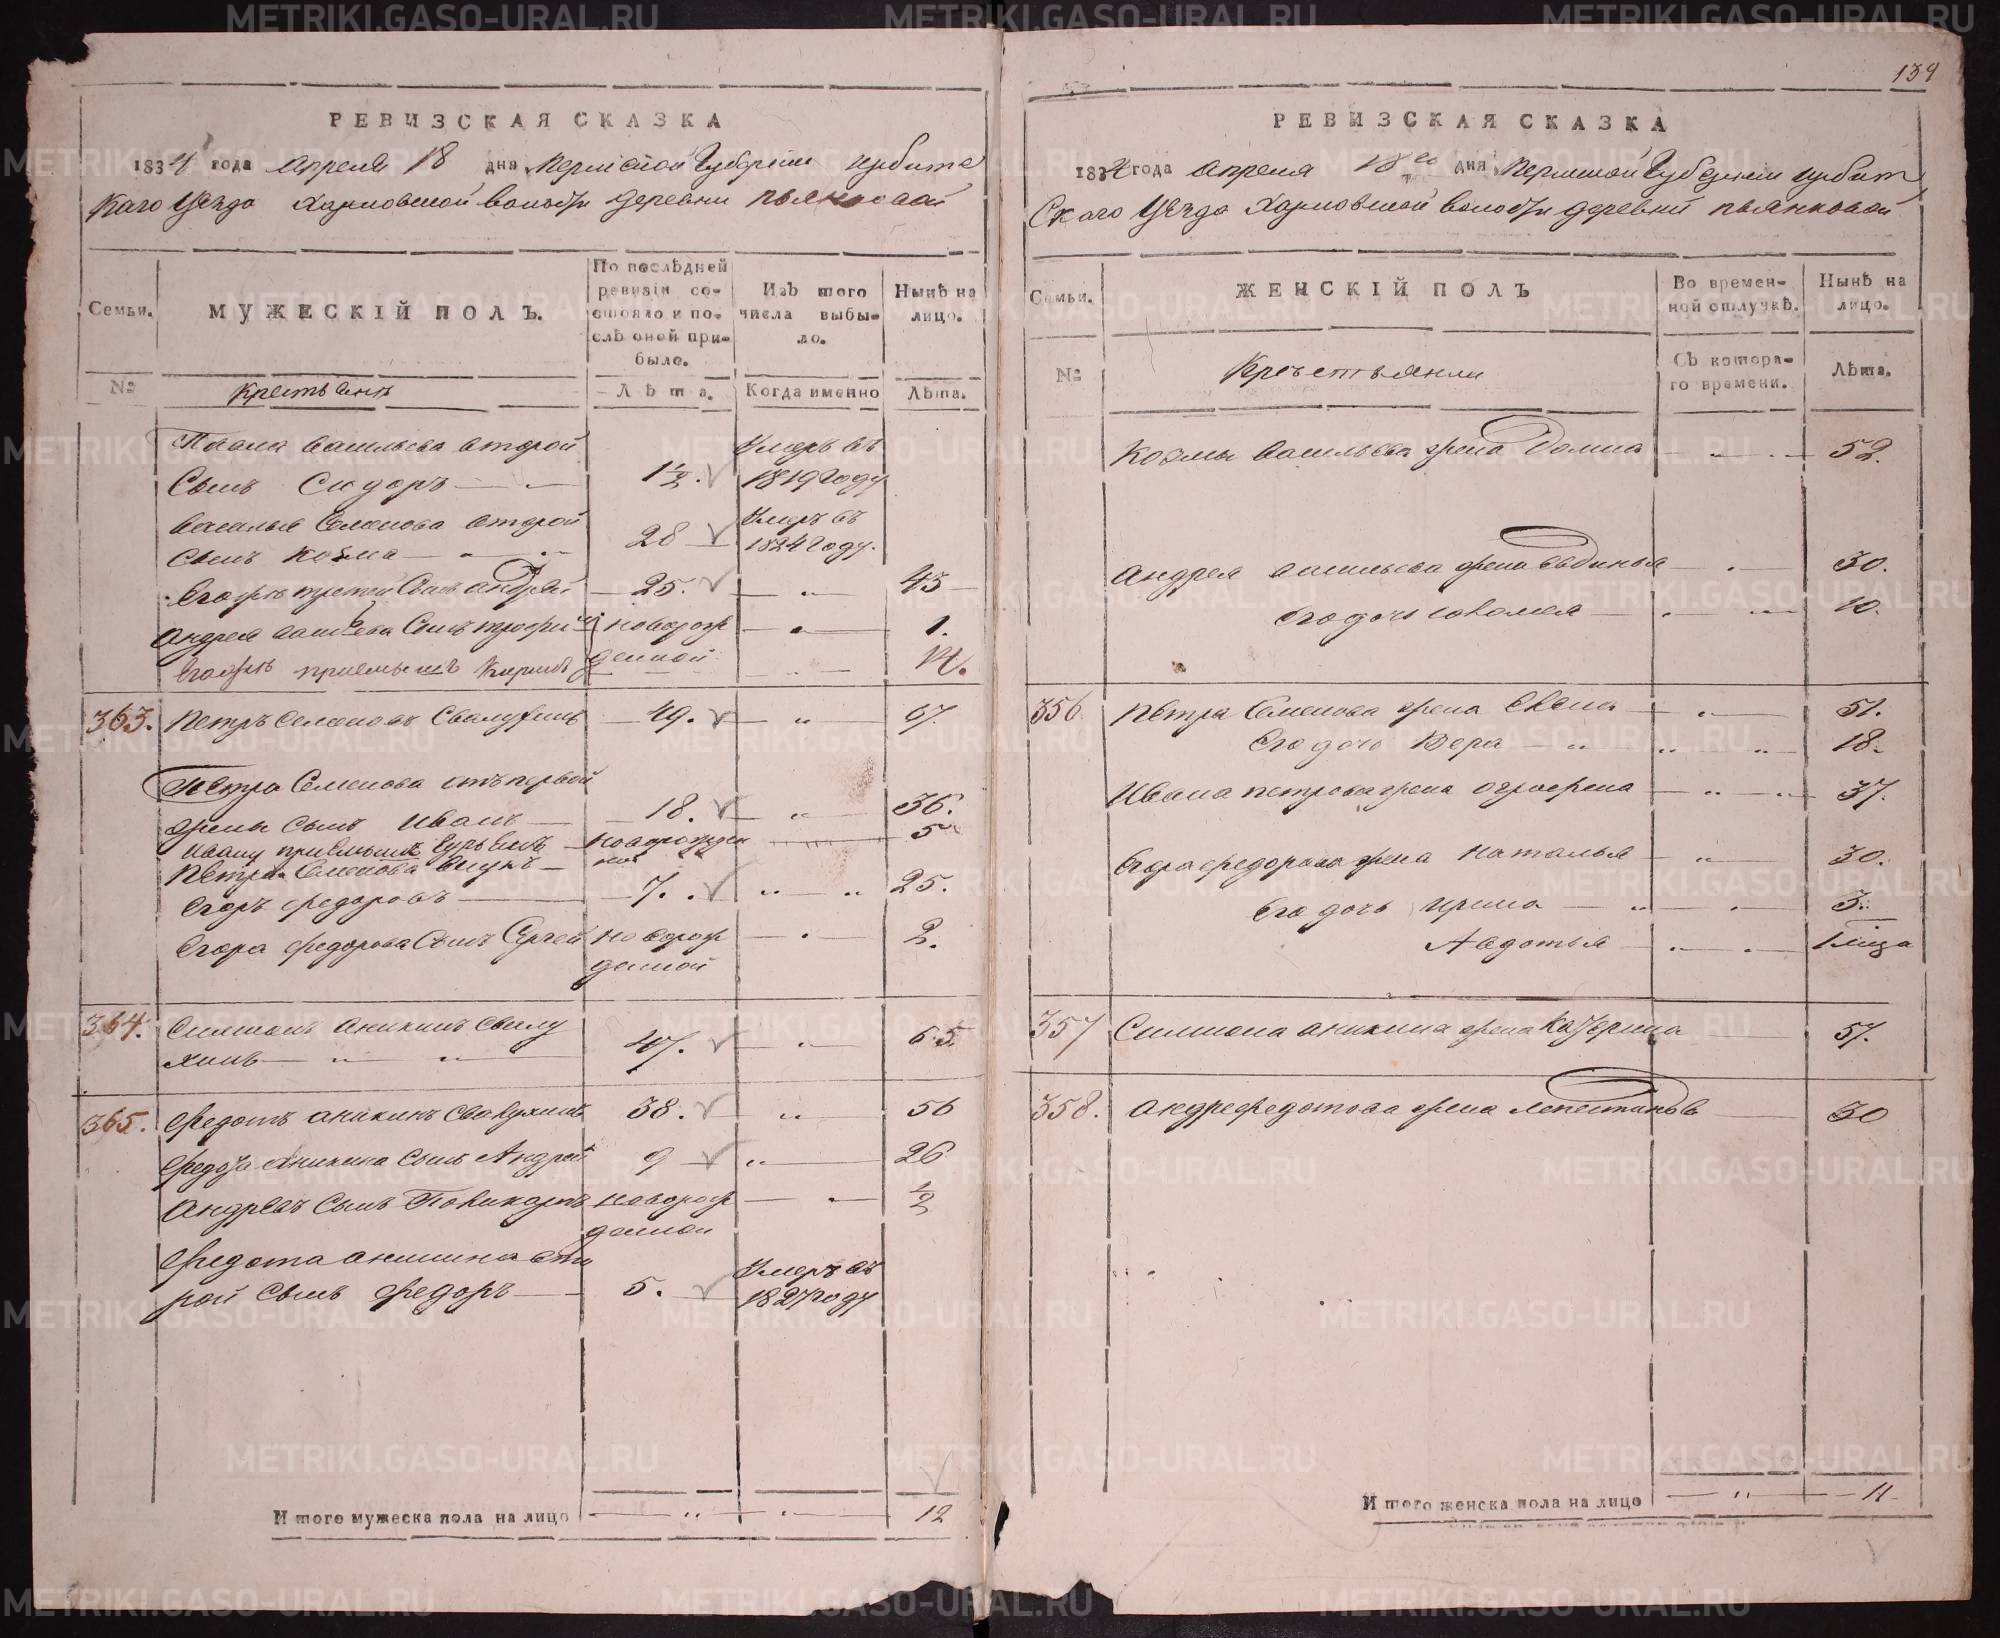 139
РЕВИЗСКАЯ СКАЗКА
1834 года апреля 18 дня Пермской Губернии Ирбитс
каго Уезда Харловской волости деревни Пьянковой
Семьи.
МУЖЕСКІЙ ПОЛЪ.
По послѣдней ревизіи состояло и послѣ оной прибыло.
Изъ того числа выбыло.
Нынѣ на лицо.
№
Крестьянъ
Лѣта.
Когда именно
Лѣта.
васильева второй Умеръ въ
Сынъ Сидоръ 1 1/2. 1819 году
Василья Семенова второй Умеръ въ
сынъ Козма 28 1824 году.
Егожъ третей Сынъ андрей 25. 43
андрея Сынъ новорож 1.
Егожъ приемышъ денной 14.
363. Петръ Семеновъ Свалухинъ 49. 67.
Петра Семенова отъ первой
жены сынъ Иванъ 18. 36.
Ивану приемышъ новорожден 5
Петра Семенова внукъ ной
Егоръ федоровъ 7. 25.
Егора федорова Сынъ Сергей новорож 2.
денной
364. Симионъ аникинъ Свалу
хинъ 47. 65.
365. федотъ аникинъ Свалухинъ 38. 56
федота Аникина сынъ Андрей 9 26
Андреевъ Сынъ Поликарпъ новорож 1/2
денной
федота аникина вто Умеръ въ
рой Сынъ федоръ 5. 1827 году
И того мужеска пола на лицо 12
РЕВИЗСКАЯ СКАЗКА
1834 года апреля 18го дня Пермской Губернии Ирбит
Скаго Уезда Харловской волости деревни Пьянковой
Семьи.
ЖЕНСКІЙ ПОЛЪ
Во временной отлучкѣ.
Нынѣ на лицо.
№
Крестьянки
Съ котораго времени.
Лѣта.
Козмы васильева жена Домна 52.
Андрея васильева жена 30.
Его дочь 10.
356 Петра Семенова жена 51.
Его дочь Вера 18.
Ивана петрова жена огрофена 37.
Егора федорова жена Наталья 30.
Его дочь Ирина 3.
Авдотья
357 Симиона аникина жена Катерина 57.
358. жена 30
И того женска пола на лицо 11
METRIKI.GASO-URAL.RU